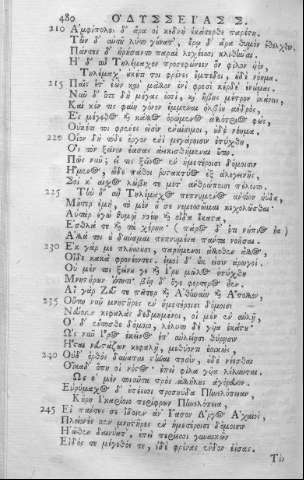 480 ὈΔΥΣΣΕΊΑΣ Σ.
210 Ἀμφίπολος δ' ἄρα οἱ κεδνὴ ἑκάτερθε παρέστη.
Τῶν δ' αὐτοῦ λύτο γούνατ', ἔρῳ δ' ἄρα θυμὸν ἔθελχθεν,
Πάντες δ' ἠρήσαντο παραὶ λεχέεσσι κλιθῆναι.
Ἡ δ' αὖ Τηλέμαχον προσεφώνεεν ὃν φίλον υἱόν,
Τηλέμαχ', οὐκέτι τοι φρένες ἔμπεδοι, οὐδὲ νόημα·
215 Παῖς ἔτ' ἐὼν καὶ μᾶλλον ἐνὶ φρεσὶ κέρδε' ἐνώμας·
Νῦν δ' ὅτε δὴ μέγας ἐσσὶ, καὶ ἥβης μέτρον ἱκάνεις,
Καί κέν τις φαίη γόνον ἔμμεναι ὀλβίου ἀνδρός,
Ἐς μέγεθος καὶ κάλλος ὁρώμενος ἀλλότριος φώς,
Οὐκέτι τοι φρένες εἰσὶν ἐναίσιμοι, οὐδὲ νόημα.
220 Οἷον δὴ τόδε ἔργον ἐνὶ μεγάροισιν ἐτύχθη,
Ὃς τὸν ξεῖνον ἔασας ἀεικισθήμεναι οὕτως.
Πῶς νῦν; εἴ τι ξεῖνος ἐν ἡμετέροισι δόμοισιν
Ἥμενος, ὧδε πάθοι ῥυστακτύος ἐξ ἀλεγεινῆς,
Σοί κ' αἶσχος λώβη τε μετ' ἀνθρώποισι πέλοιτο.
225 Τὴν δ' αὖ Τηλέμαχος πεπνυμένος ἀντίον ηὔδα,
Μῆτερ ἐμὴ, τὸ μὲν οὔ σε νεμεσσῶμαι κεχολῶσθαι·
Αὐτὰρ ἐγὼ θυμῷ νοέω καὶ οἶδα ἕκαστα,
Ἐσθλά τε καὶ τὰ χέρηα· (πάρος δ' ἔτι νήπιος ἦα)
Ἀλλά τοι οὐ δύναμαι πεπνυμένα πάντα νοῆσαι·
230 Ἐκ γάρ με πλήσσουσι, παρήμενοι ἄλλοθεν ἄλλος,
Οἵδε κακὰ φρονέοντες, ἐμοὶ δ' οὐκ εἰσὶν ἀρωγοί.
Οὐ μέν τοι ξείνου γε καὶ Ἴρου μῶλος ἐτύχθη
Μνηστήρων ἰότητι, βίῃ δ' ὅγε φέρτερος ἦεν.
Αἲ γὰρ Ζεῦ τε πάτερ καὶ Ἀθηναίη καὶ Ἄπολλον,
235 Οὕτω νῦν μνηστῆρες ἐν ἡμετέροισι δόμοισι
Νεύοιεν κεφαλὰς δεδμημένοι, οἱ μὲν ἐν αὐλῇ,
Οἱ δ' ἔντοσθε δόμοιο, λέλυτο δὲ γῦα ἑκάστου·
Ὡς νῦν Ἶρος ἐκεῖνος ἐπ' αὐλείῃσι θύρῃσιν
Ἧσται νευστάζων κεφαλῇ, μεθύοντι ἐοικώς,
240 Οὐδ' ὀρθὸς δύναται στῆναι ποσὶν, οὐδὲ νέεσθαι
Οἴκαδ' ὅπη οἱ νόστος· ἐπεὶ φίλα γῦα λέλυνται.
Ὣς οἱ μὲν τοιαῦτα πρὸς ἀλλήλους ἀγόρευον.
Εὐρύμαχος δ' ἐπέεσσι προσηύδα Πηνελόπειαν,
Κούρη Ἰκαρίοιο περίφρον Πηνελόπεια,
245 Εἰ πάντες σε ἴδοιεν ἀν' Ἴασον Ἄργος Ἀχαιοί,
Πλέονές κεν μνηστῆρες ἐν ἡμετέροισι δόμοισιν
Ἠῶθεν δαινύατ', ἐπεὶ περίεσσι γυναικῶν
Εἶδός τε μέγεθός τε, ἰδὲ φρένας ἔνδον ἐΐσας.
Τὸν